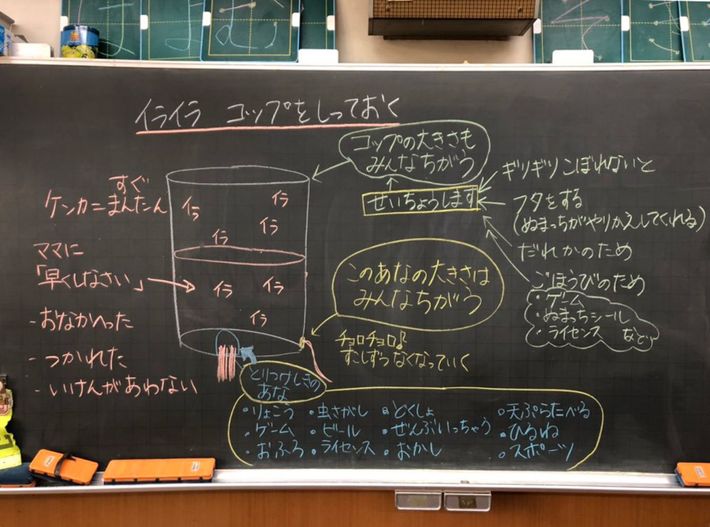 イライラ コップをしっておく
コップの大きさも
みんなちがう
せいちょうします
ギリギリこぼれないと
フタをする
(ぬまっちがやりかえしてくれる)
だれかのため
ごほうびのため
・ゲーム
・ぬまっちシール
・ライセンス
など
すぐ
ケンカ=まんたん
ママに
「早くしなさい」
・おなかへった
・つかれた
・いけんがあわない
イラ
イラ
イラ
イラ
イラ
イラ
イラ
このあなの大きさは
みんなちがう
チョロチョロ♪
すこしずつなくなっていく
とりつけしきの
あな
・りょこう ・虫さがし ・どくしょ ・天ぷらたべる
・ゲーム ・ビール ・ぜんぶいっちゃう ・ひるね
・おふろ ・ライセンス ・おかし ・スポーツ